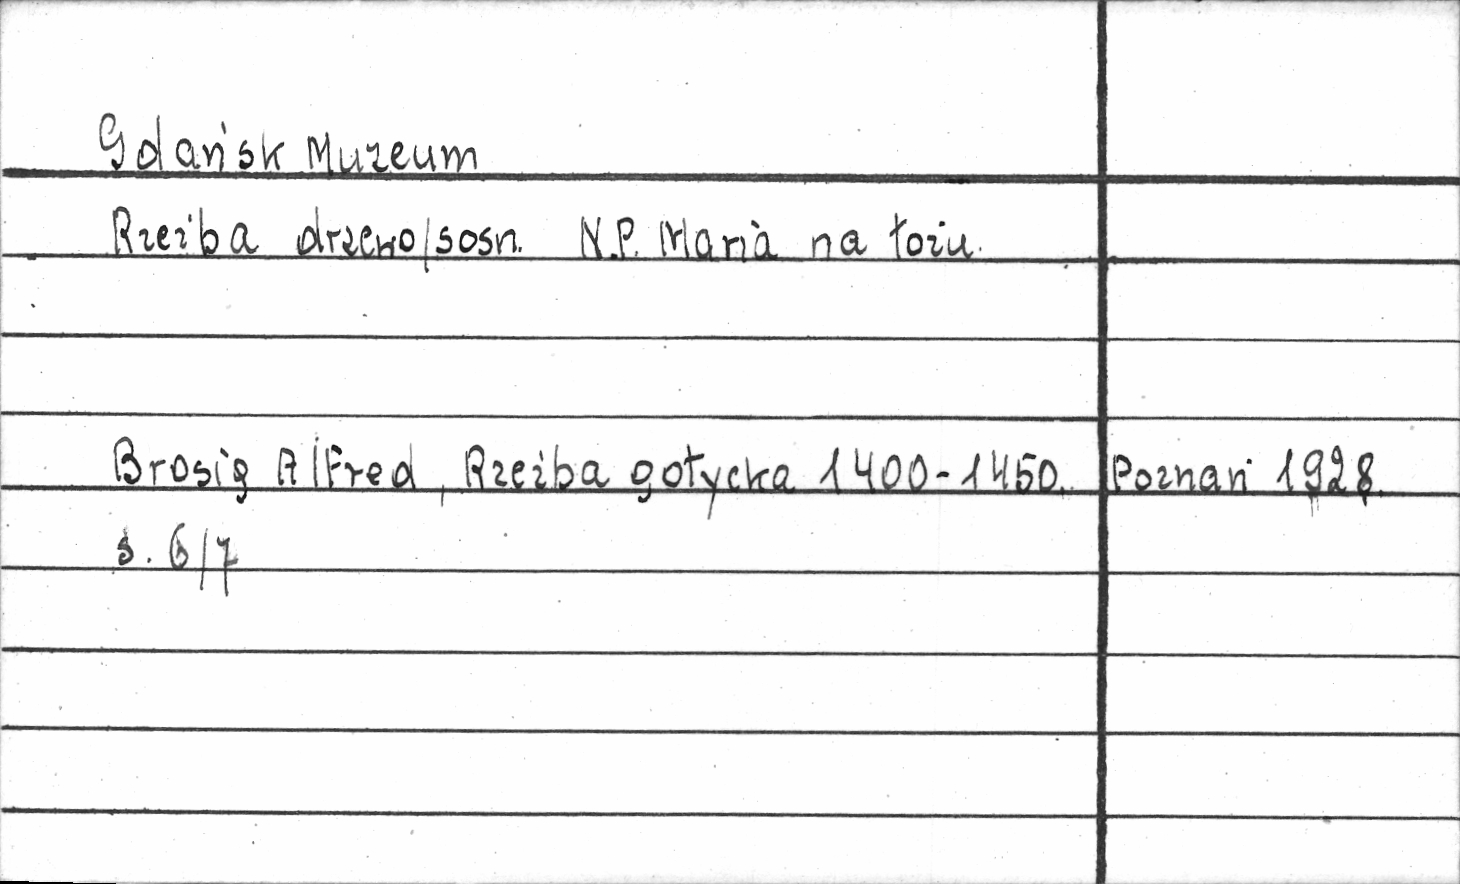 Gdańsk Muzeum
Rzeźba drzewo/sosn. N.P. Maria na łożu.
Brosig Alfred, Rzeźba gotycka 1400-1450. Poznań 1928.
s. 6/7